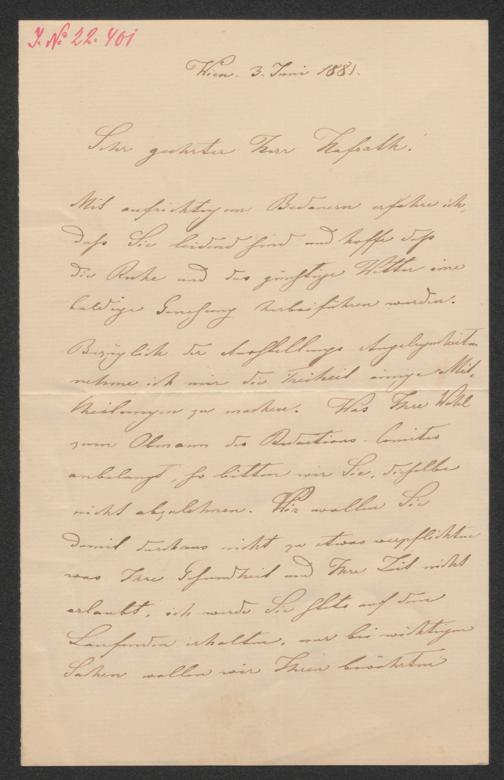 J. No 22.401
Wien. 3. Juni 1881.
Sehr geehrter Herr Hofrath!
Mit aufrichtigem Bedauern erfahre ich,
daß Sie leidend sind und hoffe daß
die Ruhe und das günstige Wetter eine
baldige Genesung herbeiführen werden.
Bezüglich der Ausstellungs Angelegenheiten
nehme ich mir die Freiheit einige Mit-
theilungen zu machen. Was Ihre Wahl
zum Obmann des Redactions-Comites
anbelangt, so bitten wir Sie, dieselbe
nicht abzulehnen. Wir wollen Sie
damit durchaus nicht zu etwas verpflichten
was Ihre Gesundheit und Ihre Zeit nicht
erlaubt, ich werde Sie stets auf dem
Laufenden erhalten, nur bei wichtigen
Sachen wollen wir Ihren bewährten